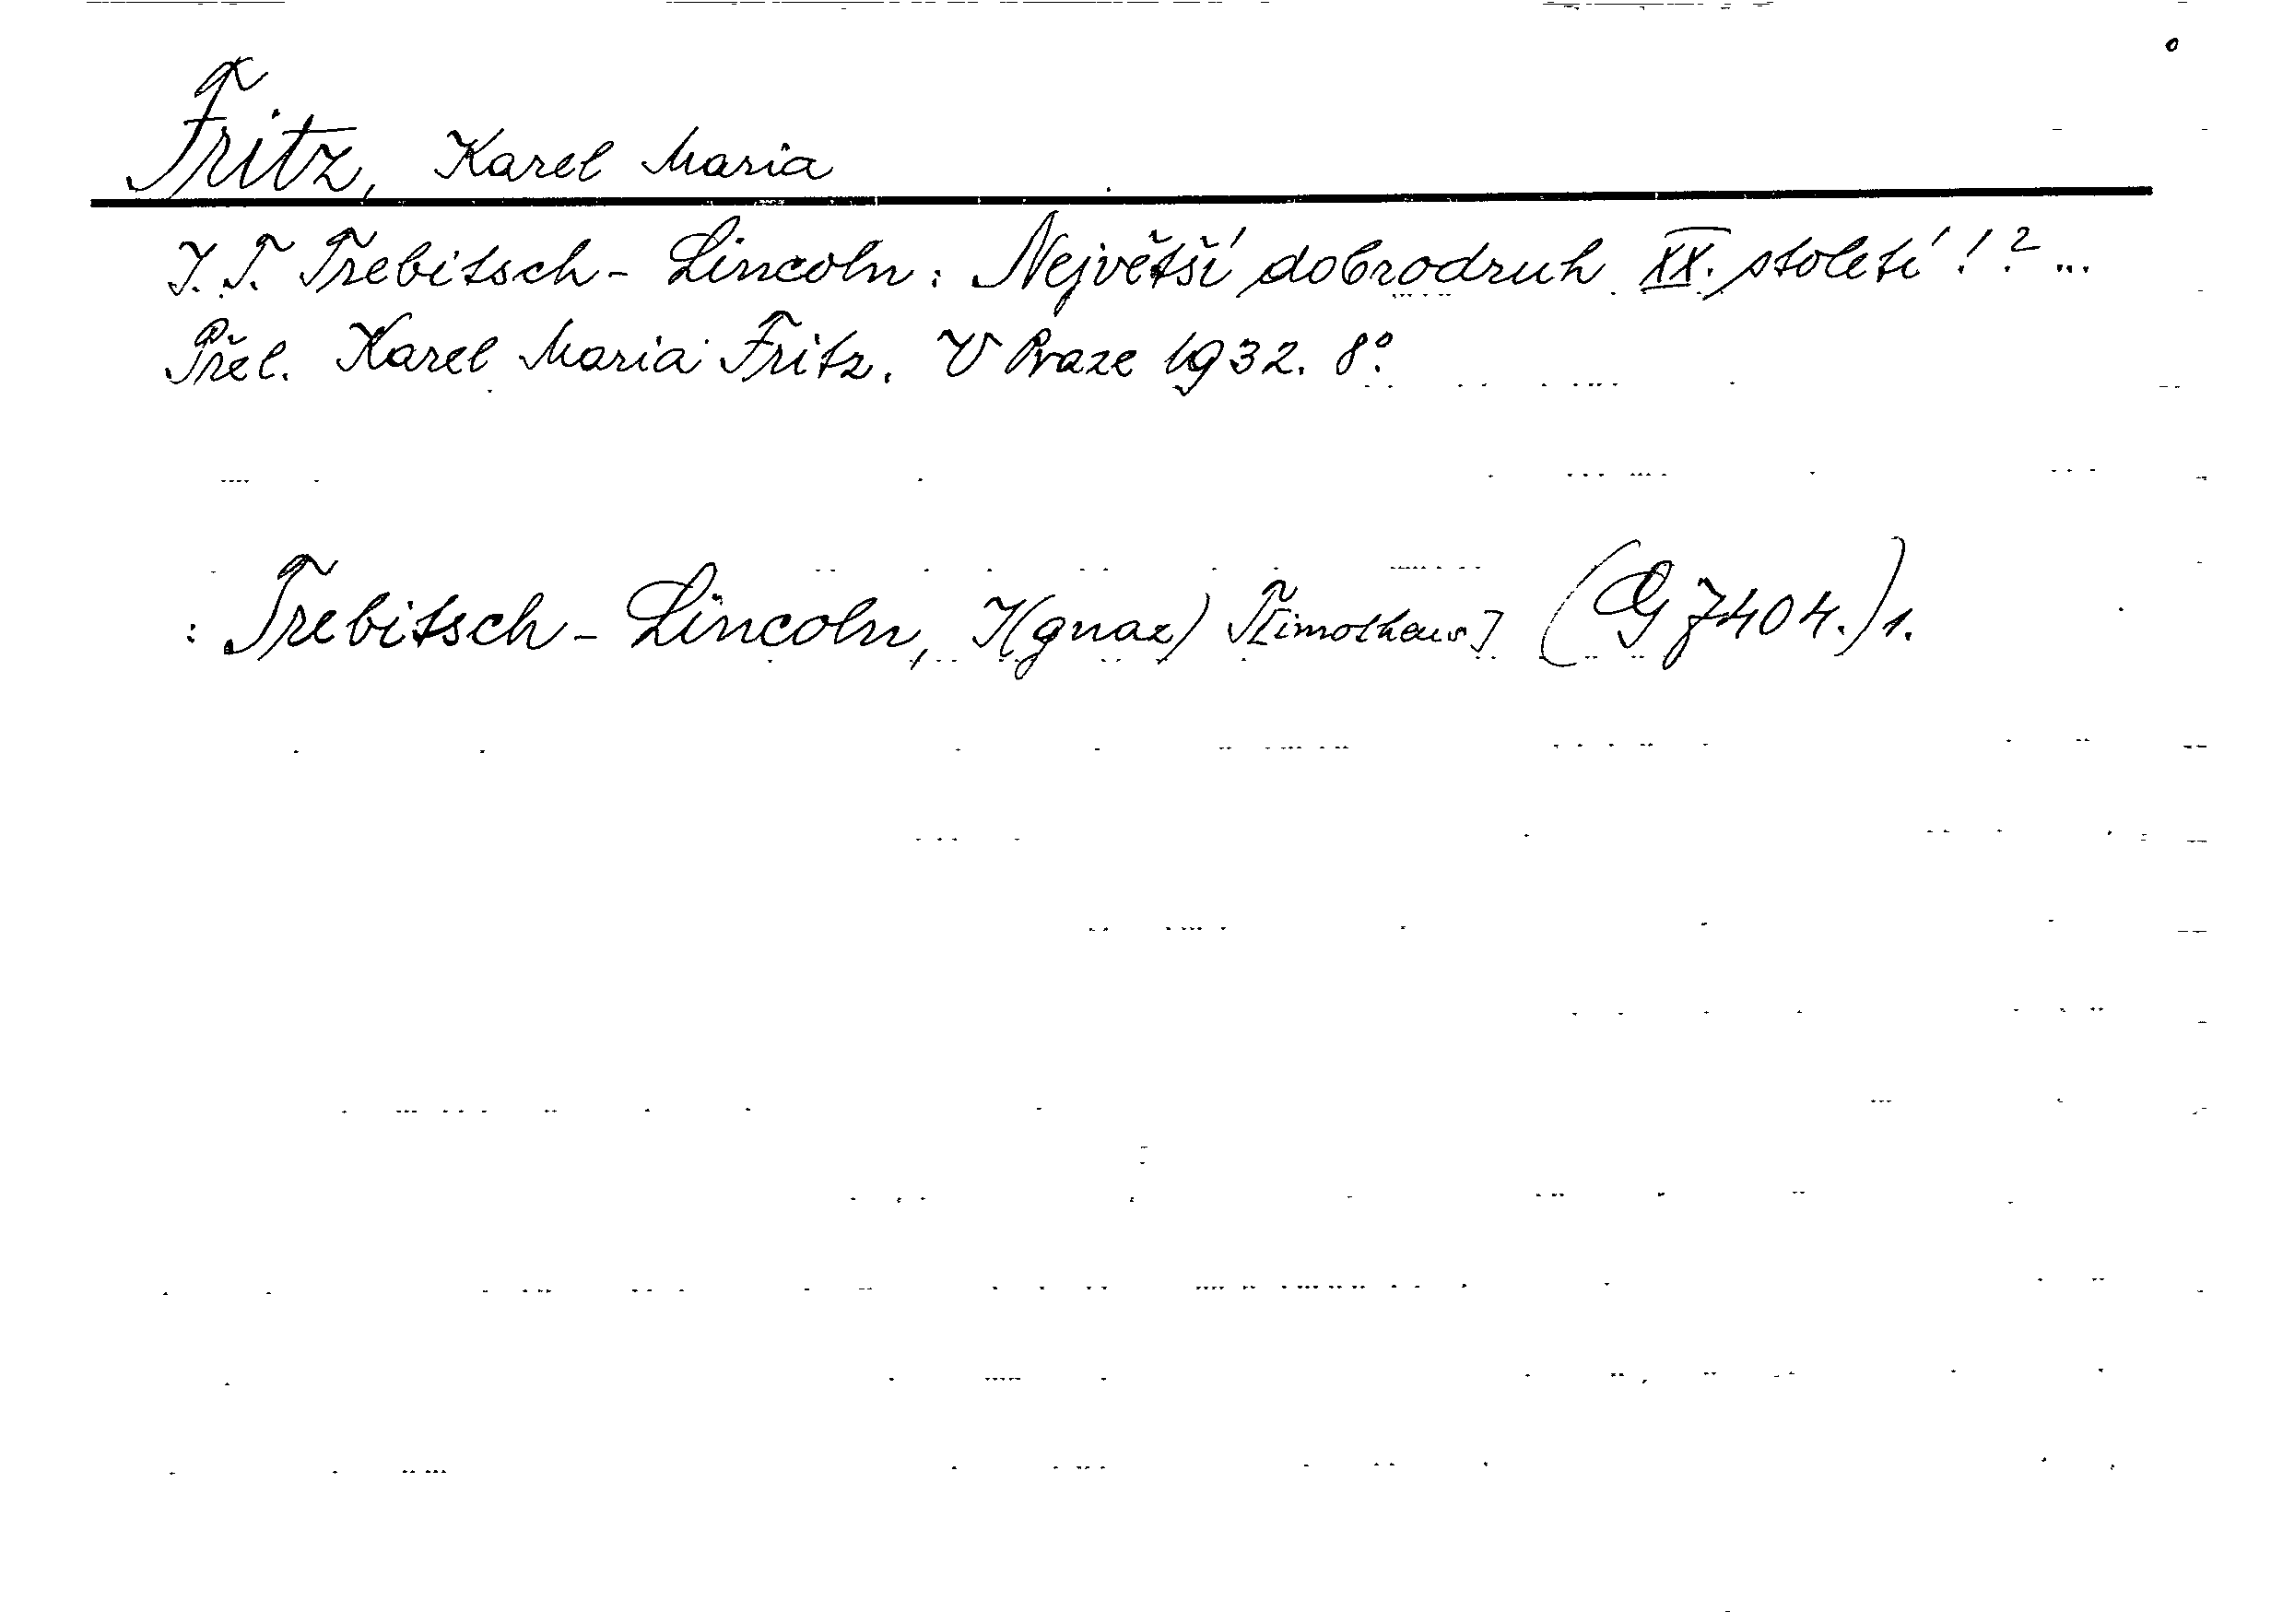 Fritz, Karel Maria
I. T. Trebitsch - Lincoln: Největší dobrodruh XX. století!? ...
Přel. Karel Maria Fritz. V Praze 1932. 8°.
: Trebitsch - Lincoln, I(gnaz) T[imotheus] (G 7404.) 1.